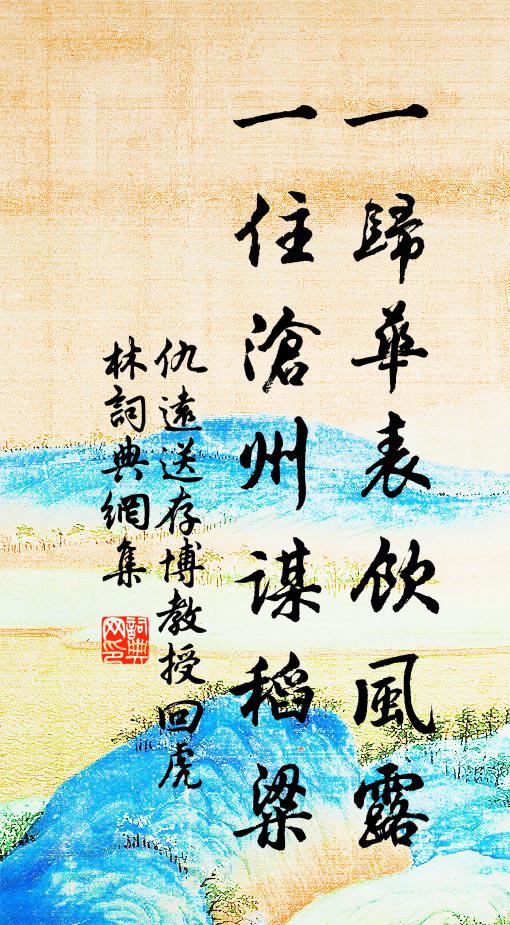 一歸華表飲風露
一住滄州謀稻粱
仇遠送存博教授回虎
林詞典網集
詞典網印